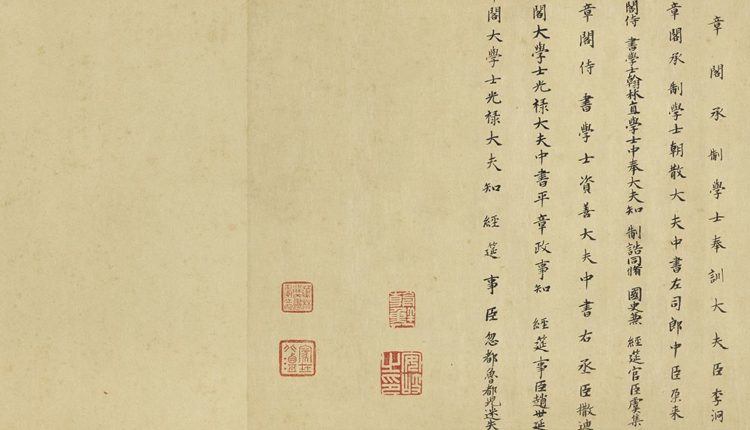 章閣承制學士奉訓大夫臣李泂
章閣承制學士朝散大夫中書左司郎中臣朶來
閣侍書學士翰林直學士中奉大夫知制誥同脩國史兼經筵官臣虞集
章閣侍書學士資善大夫中書右丞臣撒迪
閣大學士光祿大夫中書平章政事知經筵事臣趙世延
閣大學士光祿大夫知經筵事臣忽都魯都兒迷失
安岐之印